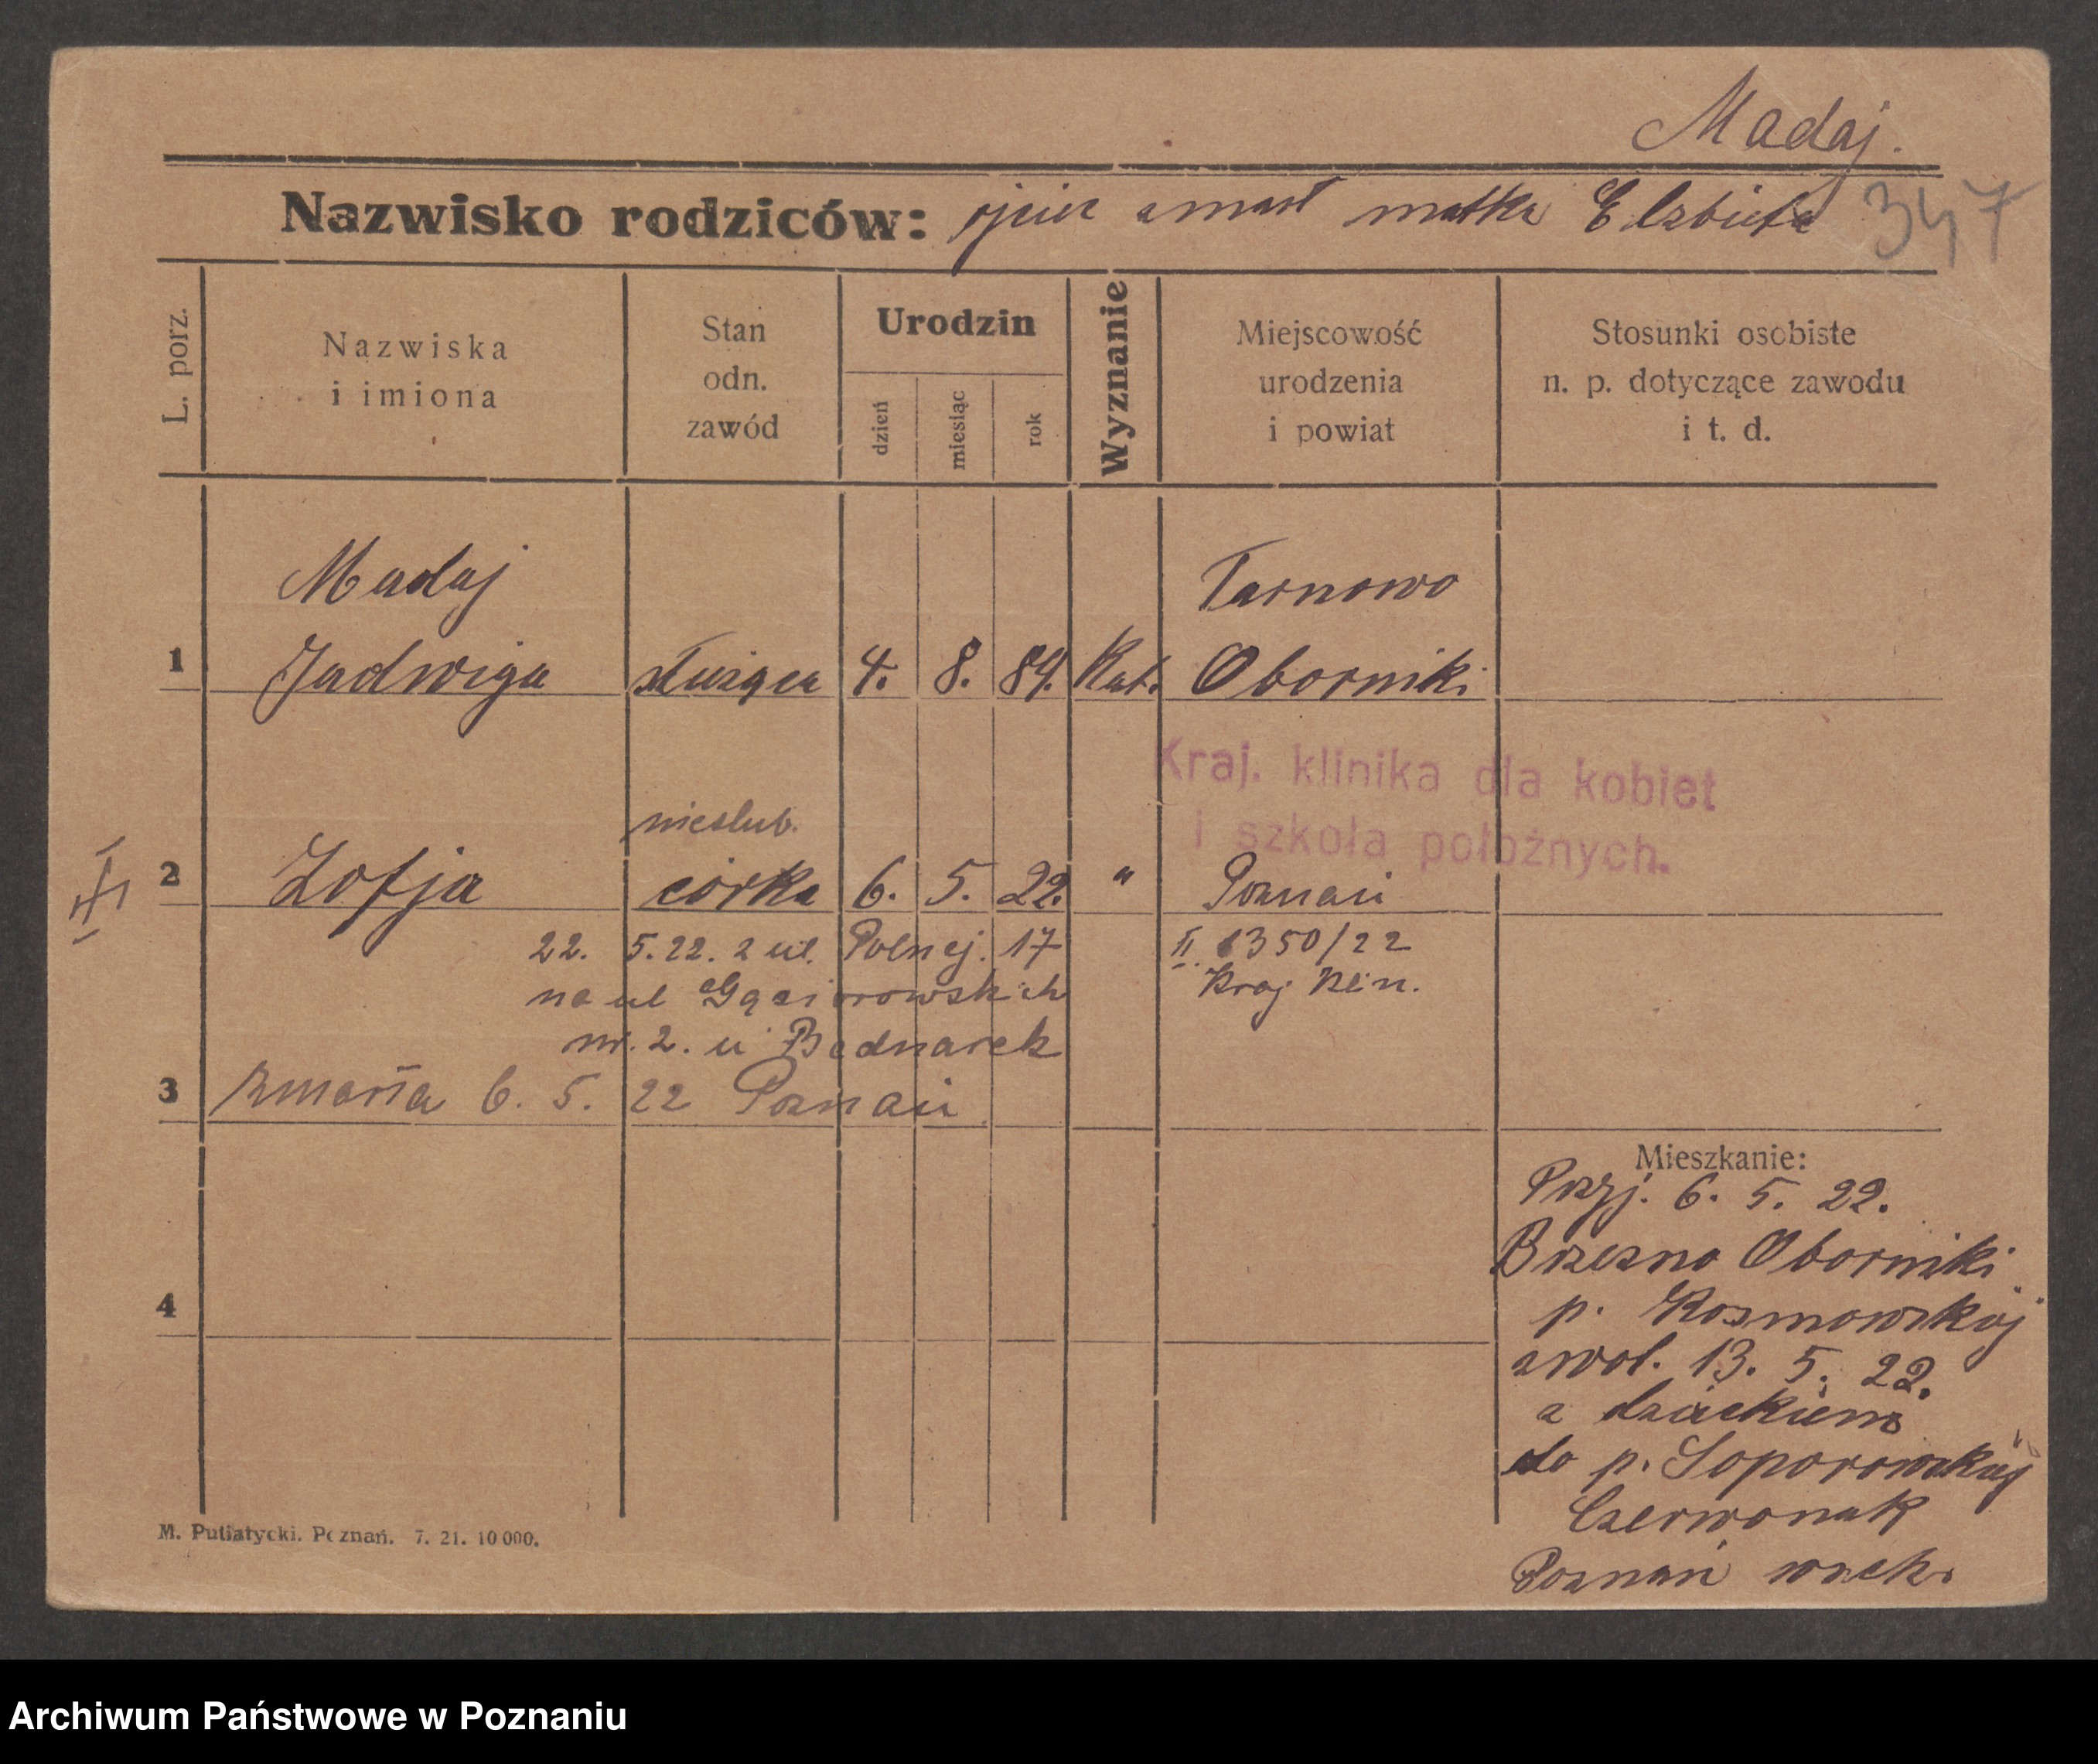 Madaj.
Nazwisko rodziców: ojciec zmarł matka Elzbieta 347
L. porz.
Nazwiska
i imiona
Stan
odn.
zawód
Urodzin
dzień
miesiąc
rok
Wyznanie
Miejscowość
urodzenia
i powiat
Stosunki osobiste
n. p. dotyczące zawodu
i t. d.
Madaj Tarnowo
1 Jadwiga służąca 4. 8. 89. Kat. Oborniki
Kraj. klinika dla kobiet
i szkoła położnych.
nieslub.
2 Zofja córka 6. 5. 22. " Poznań
22. 5. 22. z ul. Polnej. 17 II. 1350/22
na ul Gąsiorowskich Kraj Klin.
nr. 2. u Bednarek
3 zmarła 6. 5. 22 Poznań
Mieszkanie:
Przyj. 6. 5. 22.
Brzezno Oborniki
4 p. Rozmowskiej
zwol. 13. 5. 22.
z dzieckiem
do p. Soporowskiej
Czerwonak
Poznań wsch.
M. Putiatycki. Poznań. 7. 21. 10 000.
Archiwum Państwowe w Poznaniu